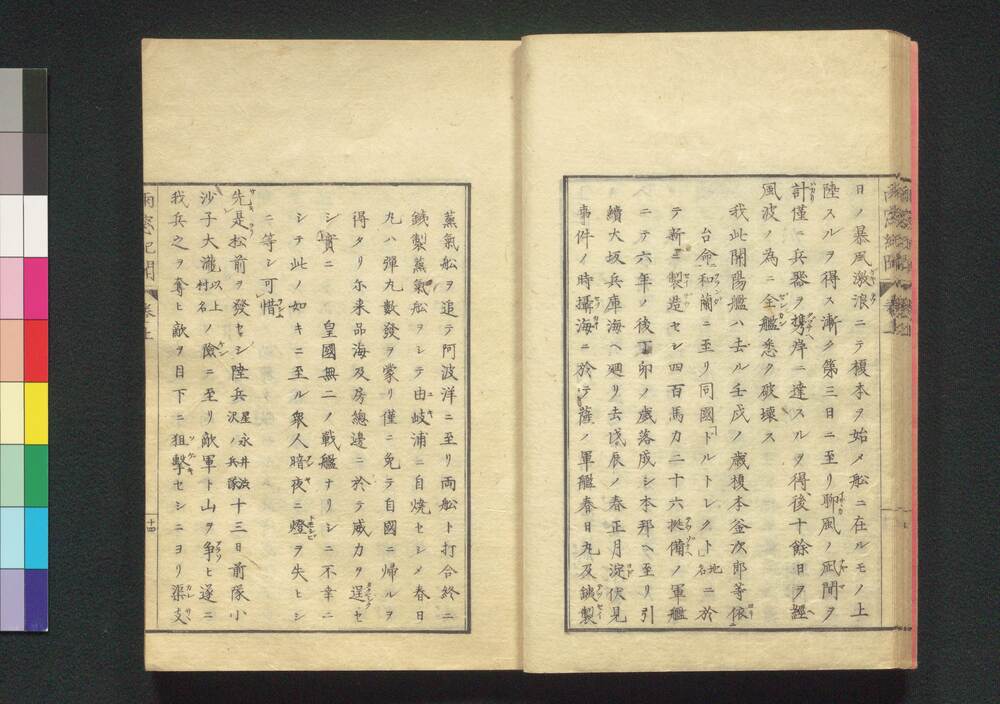 日ノ暴風激浪ニテ榎本ヲ始メ船ニ在ルモノ上
陸スルヲ得ス漸ク第三日ニ至リ聊風ノ凪間ヲ
計僅ニ兵器ヲ携岸ニ達スルヲ得後十餘日ヲ經
風波ノ為ニ全艦悉ク破壊ス
我此開陽艦ハ去ル壬戌ノ歳榎本釜次郎等依
台命和蘭ニ至リ同國「ドルトレクト」地名ニ於
テ新ニ製造セシ四百馬力二十六挺備ノ軍艦
ニテ六年ノ後丁卯ノ歳落成シ本邦ヘ至リ引
續大坂兵庫海ヘ廻リ去戊辰ノ春正月淀伏見
事件ノ時攝海ニ於テ薩ノ軍艦春日丸及鐵製
蒸氣船ヲ追テ阿波洋ニ至リ両船ト打合終ニ
鐵製蒸氣船ヲシテ由岐浦ニ自焼セシメ春日
丸ハ彈丸數發ヲ蒙リ僅ニ免テ自國ニ帰ルヲ
得タリ尓来品海及房總邊ニ於テ威力ヲ逞セ
シ實ニ 皇國無二ノ戰艦ナリシニ不幸ニ
シテ此ノ如キニ至ル衆人暗夜ニ燈ヲ失ヒシ
ニ等シ可惜
先是松前ヲ發セシ陸兵星永井浜沢ノ兵隊十三日前隊小
沙子大瀧以上村名ノ險ニ至リ敵軍ト山ヲ争ヒ遂ニ
我兵之ヲ奪ヒ敵ヲ目下ニ狙撃セシニヨリ渠支
十四